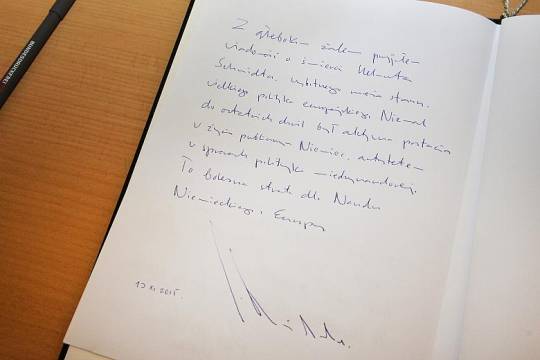 Z głębokim żalem przyjąłem
wiadomość o śmierci Helmuta
Schmidta, wybitnego męża stanu,
wielkiego polityka europejskiego. Niemal
do ostatnich dni był aktywną postacią
w życiu publicznym Niemiec, autorytetem
w sprawach polityki międzynarodowej.
To bolesna strata dla Narodu
Niemieckiego i Europy
13 XI 2015r.